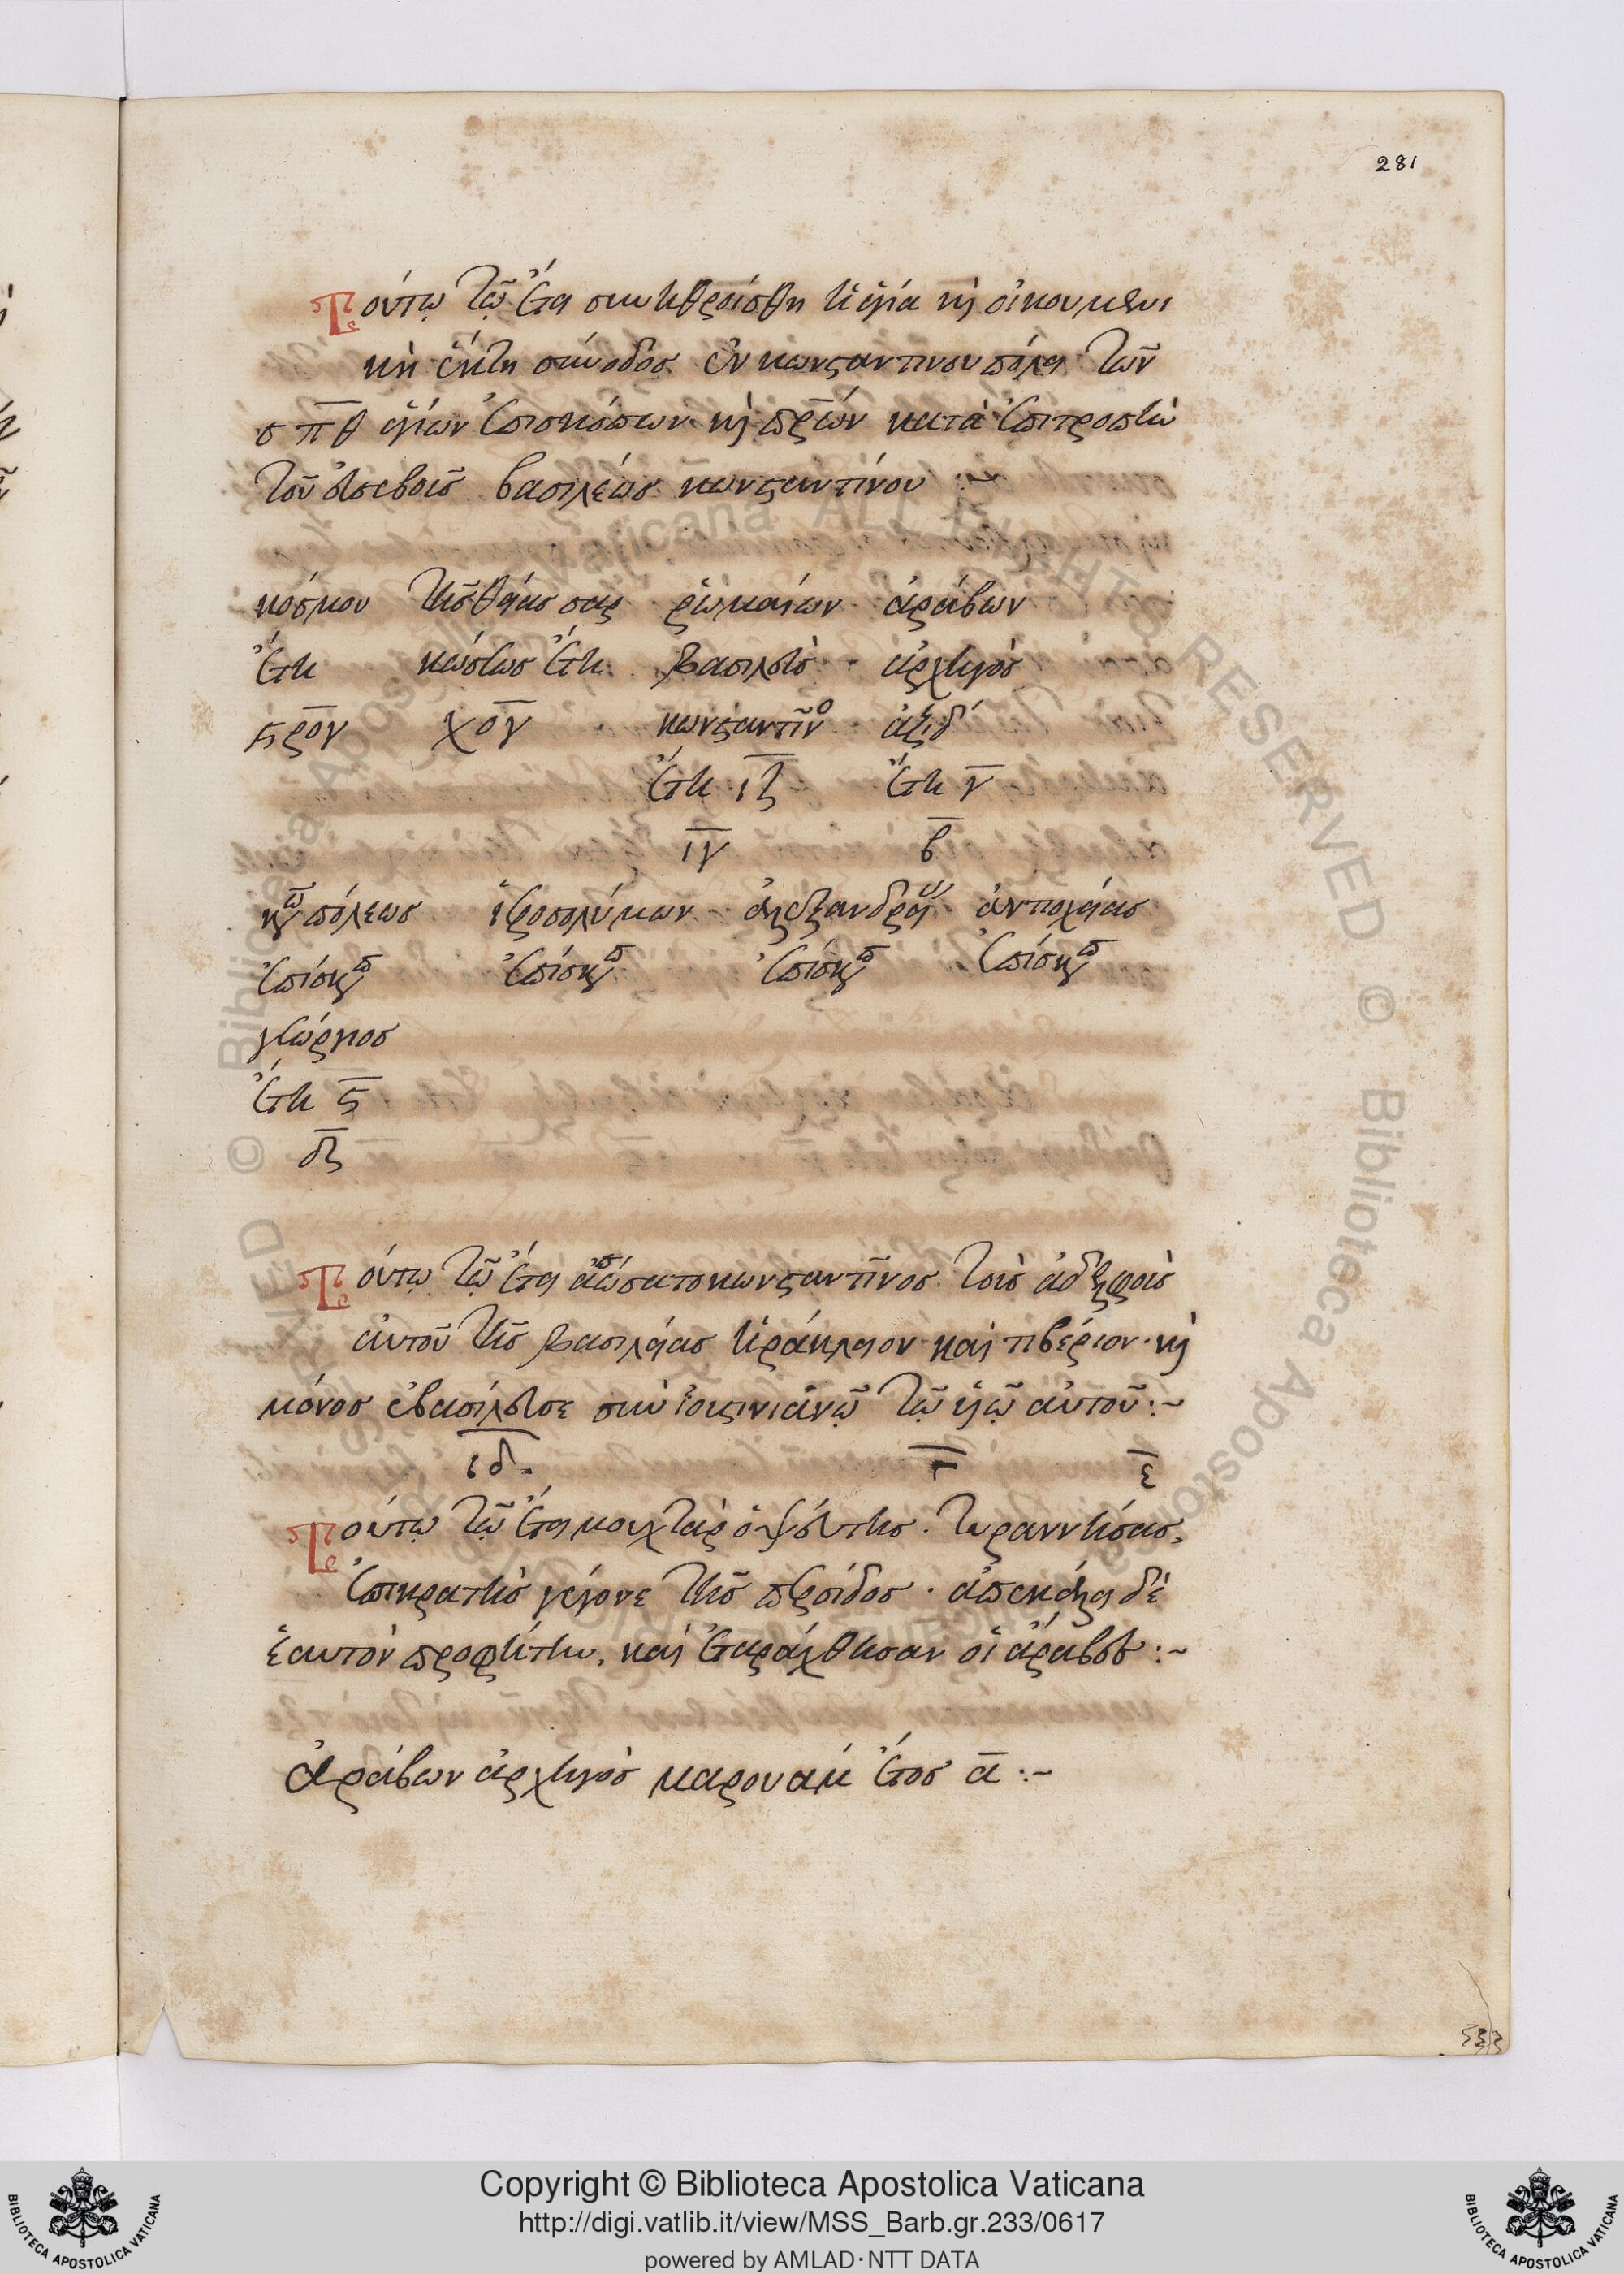 281
Τούτῳ τῷ ἔτει συνηθροίσθη ἡ ἁγία κὶ οἰκουμενι
κὴ ἕκτη σύνοδος ἐν κωνσταντινουπόλει τῶν
σπθ ἁγίων ἐπισκόπων κὶ πρ̅ων κατὰ ἐπιτροπὴν
τοῦ εὐσεβοῦς βασιλέως κωνσταντίνου :~
κόσμου τῆς θείας σαρ ῥωμαίων ἀράβων
ἔτη κώσεως ἔτη βασιλεὺς ἀρχηγὸς
͵ςρογ χογ κωνσταντῖνο ἀζιδ
ἔτη ιζ ἔτη γ
ιγ β
κωπόλεως ἱεροσολύμων ἀλεξανδρεί ἀντιοχείας
ἐπίσκοπ ἐπίσκοπ ἐπίσκοπ ἐπίσκοπ
γεώργιος
ἔτη ς
δς
Τούτῳ τῷ ἔτει ἀπώσατο κωνσταντῖνος τοὺς ἀδελφοὺς
αὐτοῦ τῆς βασιλείας ἡράκλειον καὶ τιβέριον · κὶ
μόνος ἐβασίλευσε σὺν ἰουστινιανῷ τῷ υἱῷ αὐτοῦ :~
ιδ. ε
Τούτῳ τῷ ἔτει μουχτὰρ ὁ ψεύστης. τυραννήσας,
ἐπικρατὴς γέγονε τῆς περσίδος · ἀπεκάλει δὲ
ἑαυτὸν προφήτην, καὶ ἐταράχθησαν οἱ ἄραβες :~
Ἀράβων ἀρχηγὸς μαρουάμ ἔτος α :~
Copyright © Biblioteca Apostolica Vaticana
http://digi.vatlib.it/view/MSS_Barb.gr.233/0617
powered by AMLAD·NTT DATA
BIBLIOTECA APOSTOLICA VATICANA
BIBLIOTECA APOSTOLICA VATICANA